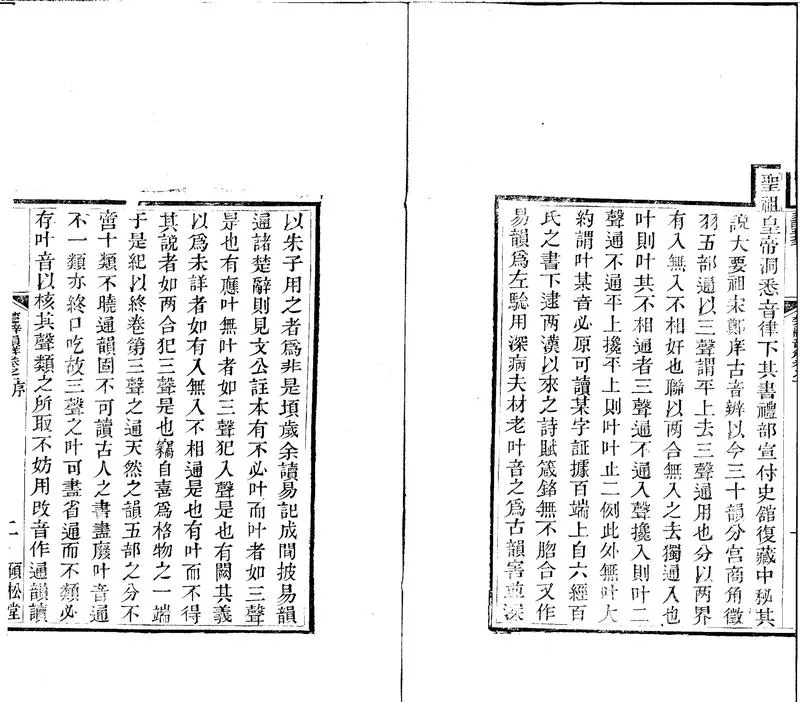 聖祖皇帝洞悉音律下其書禮部宣付史舘復藏中秘其
說大要祖宋鄭庠古音辨以今三十韻分宮商角徵
羽五部遞以三聲謂平上去三聲通用也分以兩界
有入無入不相奸也聯以兩合無入之去獨通入也
叶則叶其不相通者三聲通不通入聲攙入則叶二
聲通不通平上攙平上則叶叶止二例此外無叶大
約謂叶某音必原可讀某字証據百端上自六經百
氏之書下逮兩漢以來之詩賦箴銘無不脗合又作
易韻爲左驗用深病夫材老叶音之爲古韻害並深
以朱子用之者爲非是頃歲余讀易記成間披易韻
遍諸楚辭則見文公註本有不必叶而叶者如三聲
是也有應叶無叶者如三聲犯入聲是也有闕其義
以爲未詳者如有入無入不相通是也有叶而不得
其說者如兩合犯三聲是也竊自喜爲格物之一端
于是紀以終卷第三聲之通天然之韻五部之分不
啻十類不曉通韻固不可讀古人之書盡廢叶音通
不一類亦終口吃故三聲之叶可盡省通而不類必
存叶音以核其聲類之所取不妨用改音作通韻讀
序
二
頋松堂